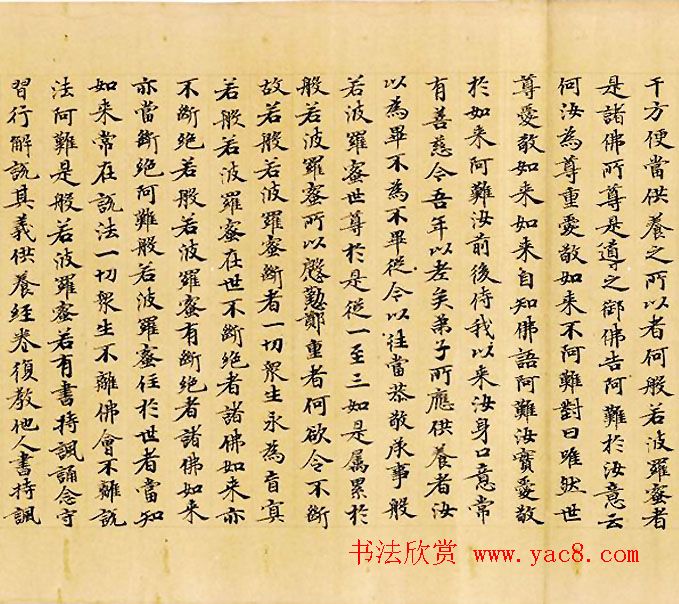 千方便當供養之所以者何般若波羅蜜者
是諸佛所尊是導之御佛告阿難於汝意云
何汝為尊重愛敬如来不阿難對曰唯然世
尊愛敬如来如来自知佛語阿難汝實愛敬
於如来阿難汝前後侍我以来汝身口意常
有善慈今吾年以老矣弟子所應供養者汝
以為畢不為不畢從今以往當恭敬承事般
若波羅蜜世尊於是從一至三如是属累於
般若波羅蜜所以慇懃鄭重者何欲令不斷
故若般若波羅蜜斷者一切衆生永為盲冥
若般若波羅蜜在世不斷絕者諸佛如来亦
不斷絕若般若波羅蜜有斷絕者諸佛如来
亦當斷絕阿難般若波羅蜜住於世者當知
如来常在說法一切衆生不離佛會不離說
法阿難是般若波羅蜜若有書持諷誦念守
習行解說其義供養経卷復教他人書持諷
书法欣赏 www.yac8.com